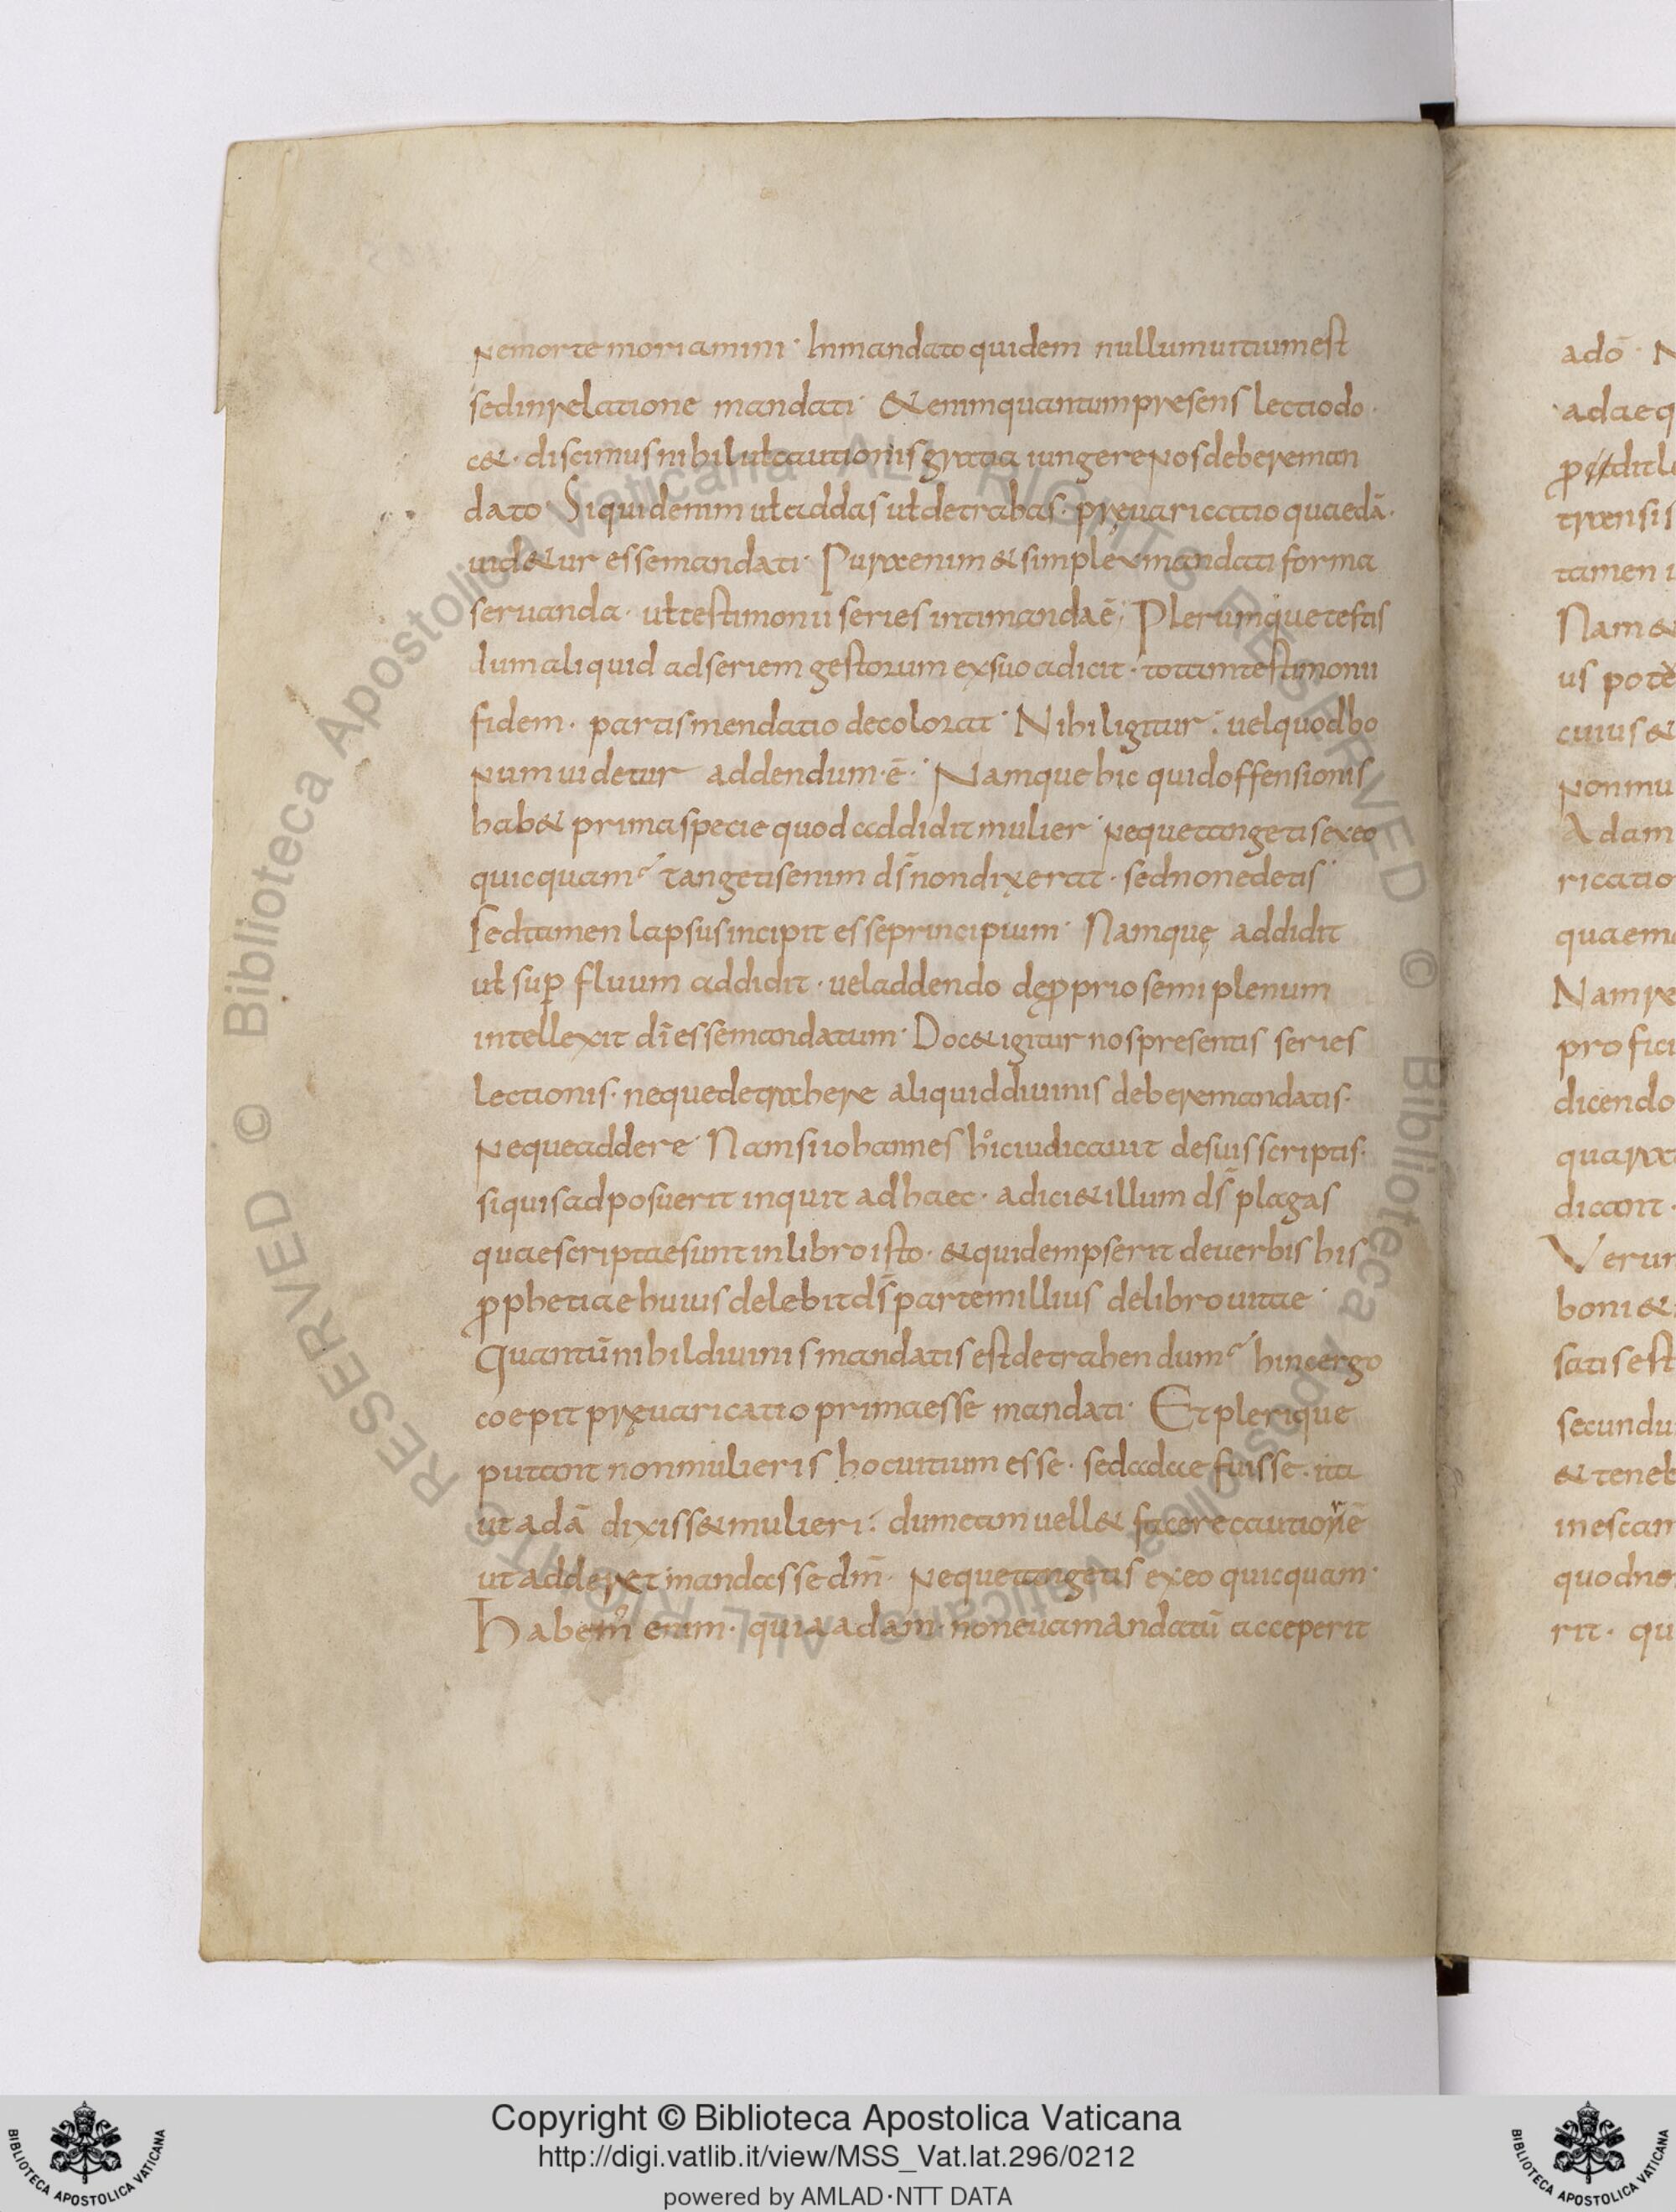 nemorte moriamini · Inmandato quidem nullumuitiumest
sedinrelatione mandati · &enimquantumpresens lectiodo·
c&· discimusnihil uł cautionisgratia iungerenosdebereman
dato · Siquidenim uł addas uł detrahas · pręuaricatio quaedā·
uid&ur essemandati · Puraenim & simplexmandati forma
seruanda · uł testimonii series intimandaē; Plerumquetestis
dumaliquid adseriem gestorum exsuo adicit · totamtestimonii
fidem · partismendatio decolorat · Nihiligitur · uelquodbo
numuidetur addendum·ē· Namquehic quidoffensionis
hab& primaspecie quod addidit mulier · nequetangetisexeo
quicquam · tangetisenim ds̄ nondixerat · sednonedetis ·
Sedtamen lapsusincipit esseprincipium · Namquę addidit
uł suꝑ fluum addidit · ueladdendo deꝓprio semiplenum
intellexit dī essemandatum · Doc&igitur nospresentis series
lectionis · nequedetrahere aliquiddiuinis deberemandatis·
nequeaddere · Namsiiohannes hociudicauit desuisscriptis·
siquisadposuerit inquit adhaec · adici&illum ds̄ plagas
quaescriptaesuntinlibroisto · &quidempserit deuerbis his
ꝓphetiaehuius delebitds̄ partemillius delibrouitae ·
Quantūnihildiuinismandatisestdetrahendum · hincergo
coepit pręuaricatio primaesse mandati · Etplerique
putant nonmulieris hocuitium esse · sedadae fuisse · ita
ut adā dixiss&mulieri · dumeamuell& facere cautionē
ut adderet mandasse dm̄ · nequetangetis exeo quicquam ·
Habem' enim · quiaadam · noneuamandatū acceperit
adō · N
adae q
tamen i
Nam&
us potē
cuius&
nonmu
Adam
ricatio
quaem
Namre
profici
dicendo
quarat
dicant ·
Verum
boni&
satisest
secundu
&teneb
inescam
quodno
rit · qu
Copyright © Biblioteca Apostolica Vaticana
http://digi.vatlib.it/view/MSS_Vat.lat.296/0212
powered by AMLAD·NTT DATA
BIBLIOTECA APOSTOLICA VATICANA
BIBLIOTECA APOSTOLICA VATICANA
© Biblioteca Apostolica Vaticana ALL RIGHTS RESERVED
© Biblioteca Apostolica Vaticana ALL RIGHTS RESERVED